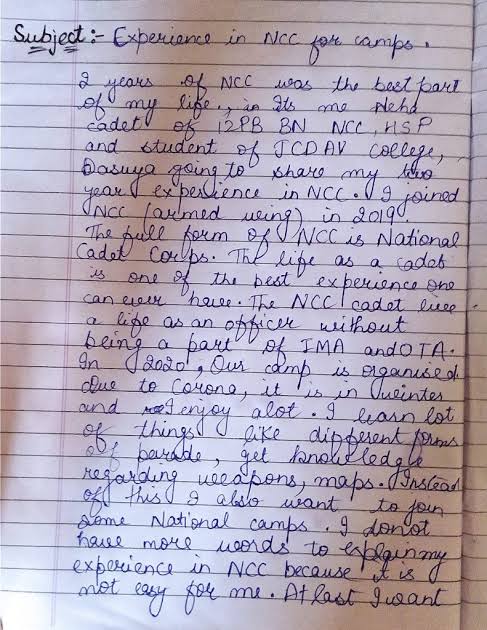 Subject:- Experience in NCC for camps.
2 years of NCC was the best part
of my life., in Its me Neha
cadet of 12PB BN NCC, HSP
and student of JCDAV College,
Dasuya going to share my two
year experience in NCC. I joined
NCC (armed wing) in 2019.
The full form of NCC is National
Cadet Corps. The life as a cadet
is one of the best experience one
can ever have. The NCC cadet live
a life as an officer without
being a part of IMA and OTA.
In 2020, Our camp is organised
due to Corona, it is in winter
and I enjoy alot. I learn lot
of things like different forms
of parade, get knowledge
regarding weapons, maps. Instead
of this I also want to join
some National camps. I donot
have more words to explain my
experience in NCC because it is
not easy for me. At last I want